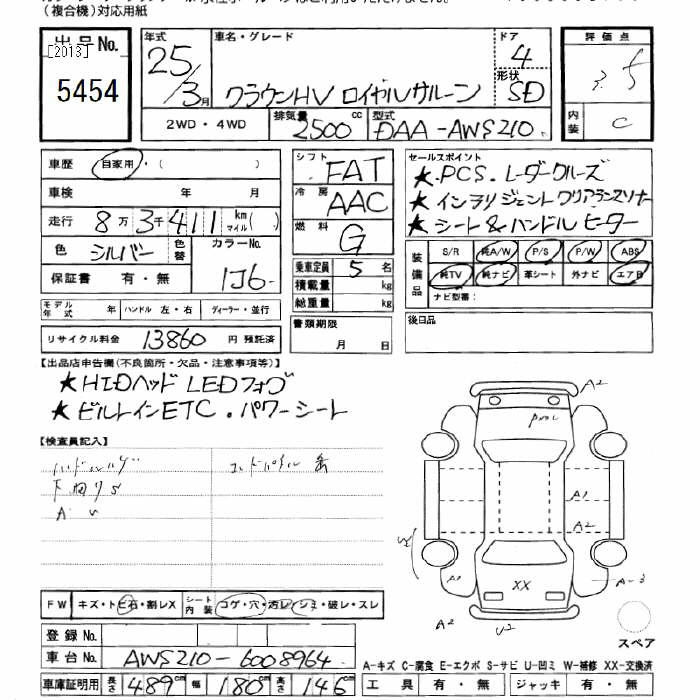 （複合機）対応用紙
出品No.
[2013]
5454
年式
25/3月
車名・グレード
クラウンHV ロイヤルサルーン
ドア
4
形状
SD
2WD・4WD
排気量
2500 cc
型式
DAA-AWS210
評価点
内装
C
車歴
自家用・（ ）
車検 年 月
走行 8万3千411 km マイル( )
色 シルバー 色替
カラーNo.
1J6
保証書 有・無
モデル年式 年 ハンドル 左・右 ディーラー・並行
リサイクル料金 13860 円 預託済
シフト FAT
冷房 AAC
燃料 G
乗車定員 5 名
積載量 kg
総重量 kg
書類期限
月 日
セールスポイント
★ PCS. レーダークルーズ
★ インテリジェントクリアランスソナー
★ シート & ハンドル ヒーター
装備品
S/R 純A/W P/S P/W ABS
純TV 純ナビ 革シート 外ナビ エアB
ナビ型番：
後日品
【出品店申告欄（不良箇所・欠品・注意事項等）】
★ HIDヘッド LEDフォグ
★ ビルトインETC. パワーシート
【検査員記入】
A2
A1
A2
XX
A-3
FW キズ・トビ石・割レX
シート内装 コゲ・穴・汚レ・シミ・破レ・スレ
登録No.
車台No. AWS210-6008964
車庫証明用 長さ 489cm 幅 180cm 高さ 146cm
スペア
A-キズ C-腐食 E-エクボ S-サビ U-凹ミ W-補修 XX-交換済
工具 有・無 ジャッキ 有・無